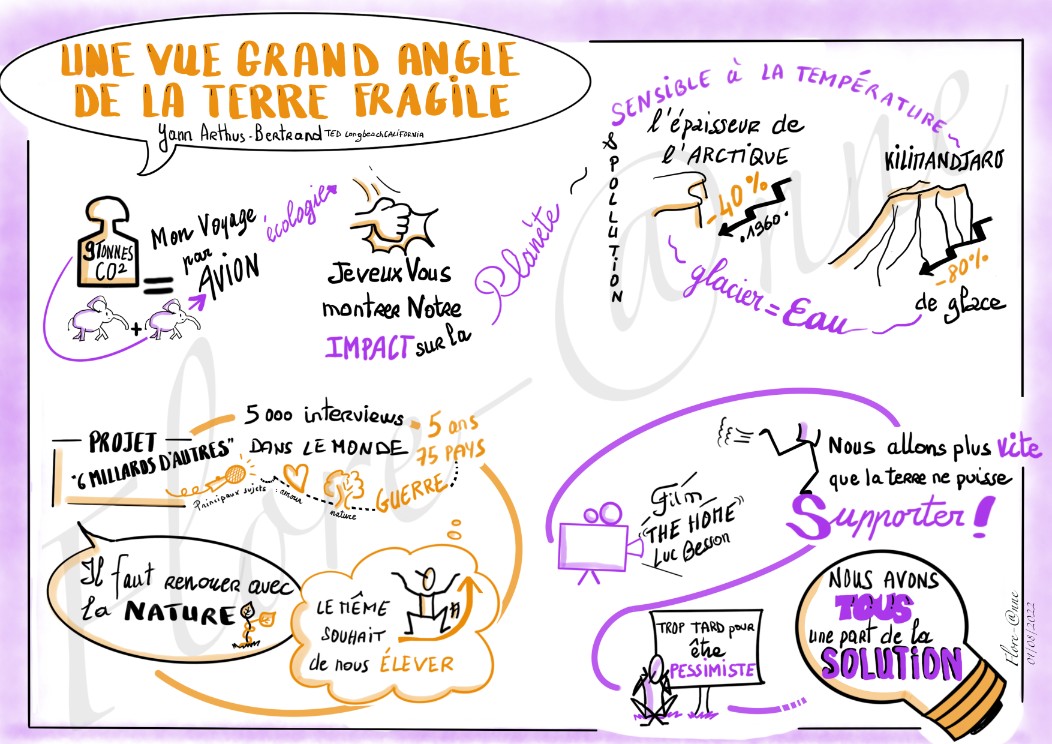 UNE VUE GRAND ANGLE
DE LA TERRE FRAGILE
Yann Arthus-Bertrand TED Longbeach CALIFORNIA
9 TONNES
CO2
=
Mon Voyage
par
AVION
+
écologie
Je veux Vous
montrer Notre
IMPACT sur la
Planète
& POLLUTION
SENSIBLE à LA TEMPÉRATURE
l'épaisseur de
l'ARCTIQUE
-40%
.1960.
KILIMANDJARO
-80%
de glace
glacier = Eau
PROJET
"6 MILLARDS D'AUTRES"
5 000 interviews - 5 ans
DANS LE MONDE 75 PAYS
Principaux sujets : amour
nature
GUERRE
Il faut RENOUER avec
la NATURE
LE MÊME
SOUHAIT
de nous ÉLEVER
Nous allons plus vite
que la TERRE ne puisse
Supporter !
Film
"THE HOME"
Luc Besson
TROP TARD pour
être
PESSIMISTE
NOUS AVONS
TOUS
une part de la
SOLUTION
Flore-@nne
01/08/2022
Flore-@nne